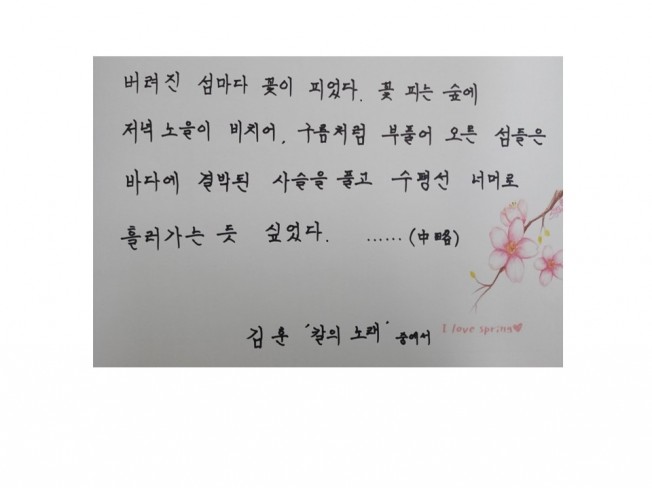 버려진 섬마다 꽃이 피었다. 꽃 피는 숲에
저녁 노을이 비치어, 구름처럼 부풀어 오른 섬들은
바다에 결박된 사슬을 풀고 수평선 너머로
흘러가는 듯 싶었다. ......(中略)
김훈 '칼의 노래' 중에서
I love spring♥